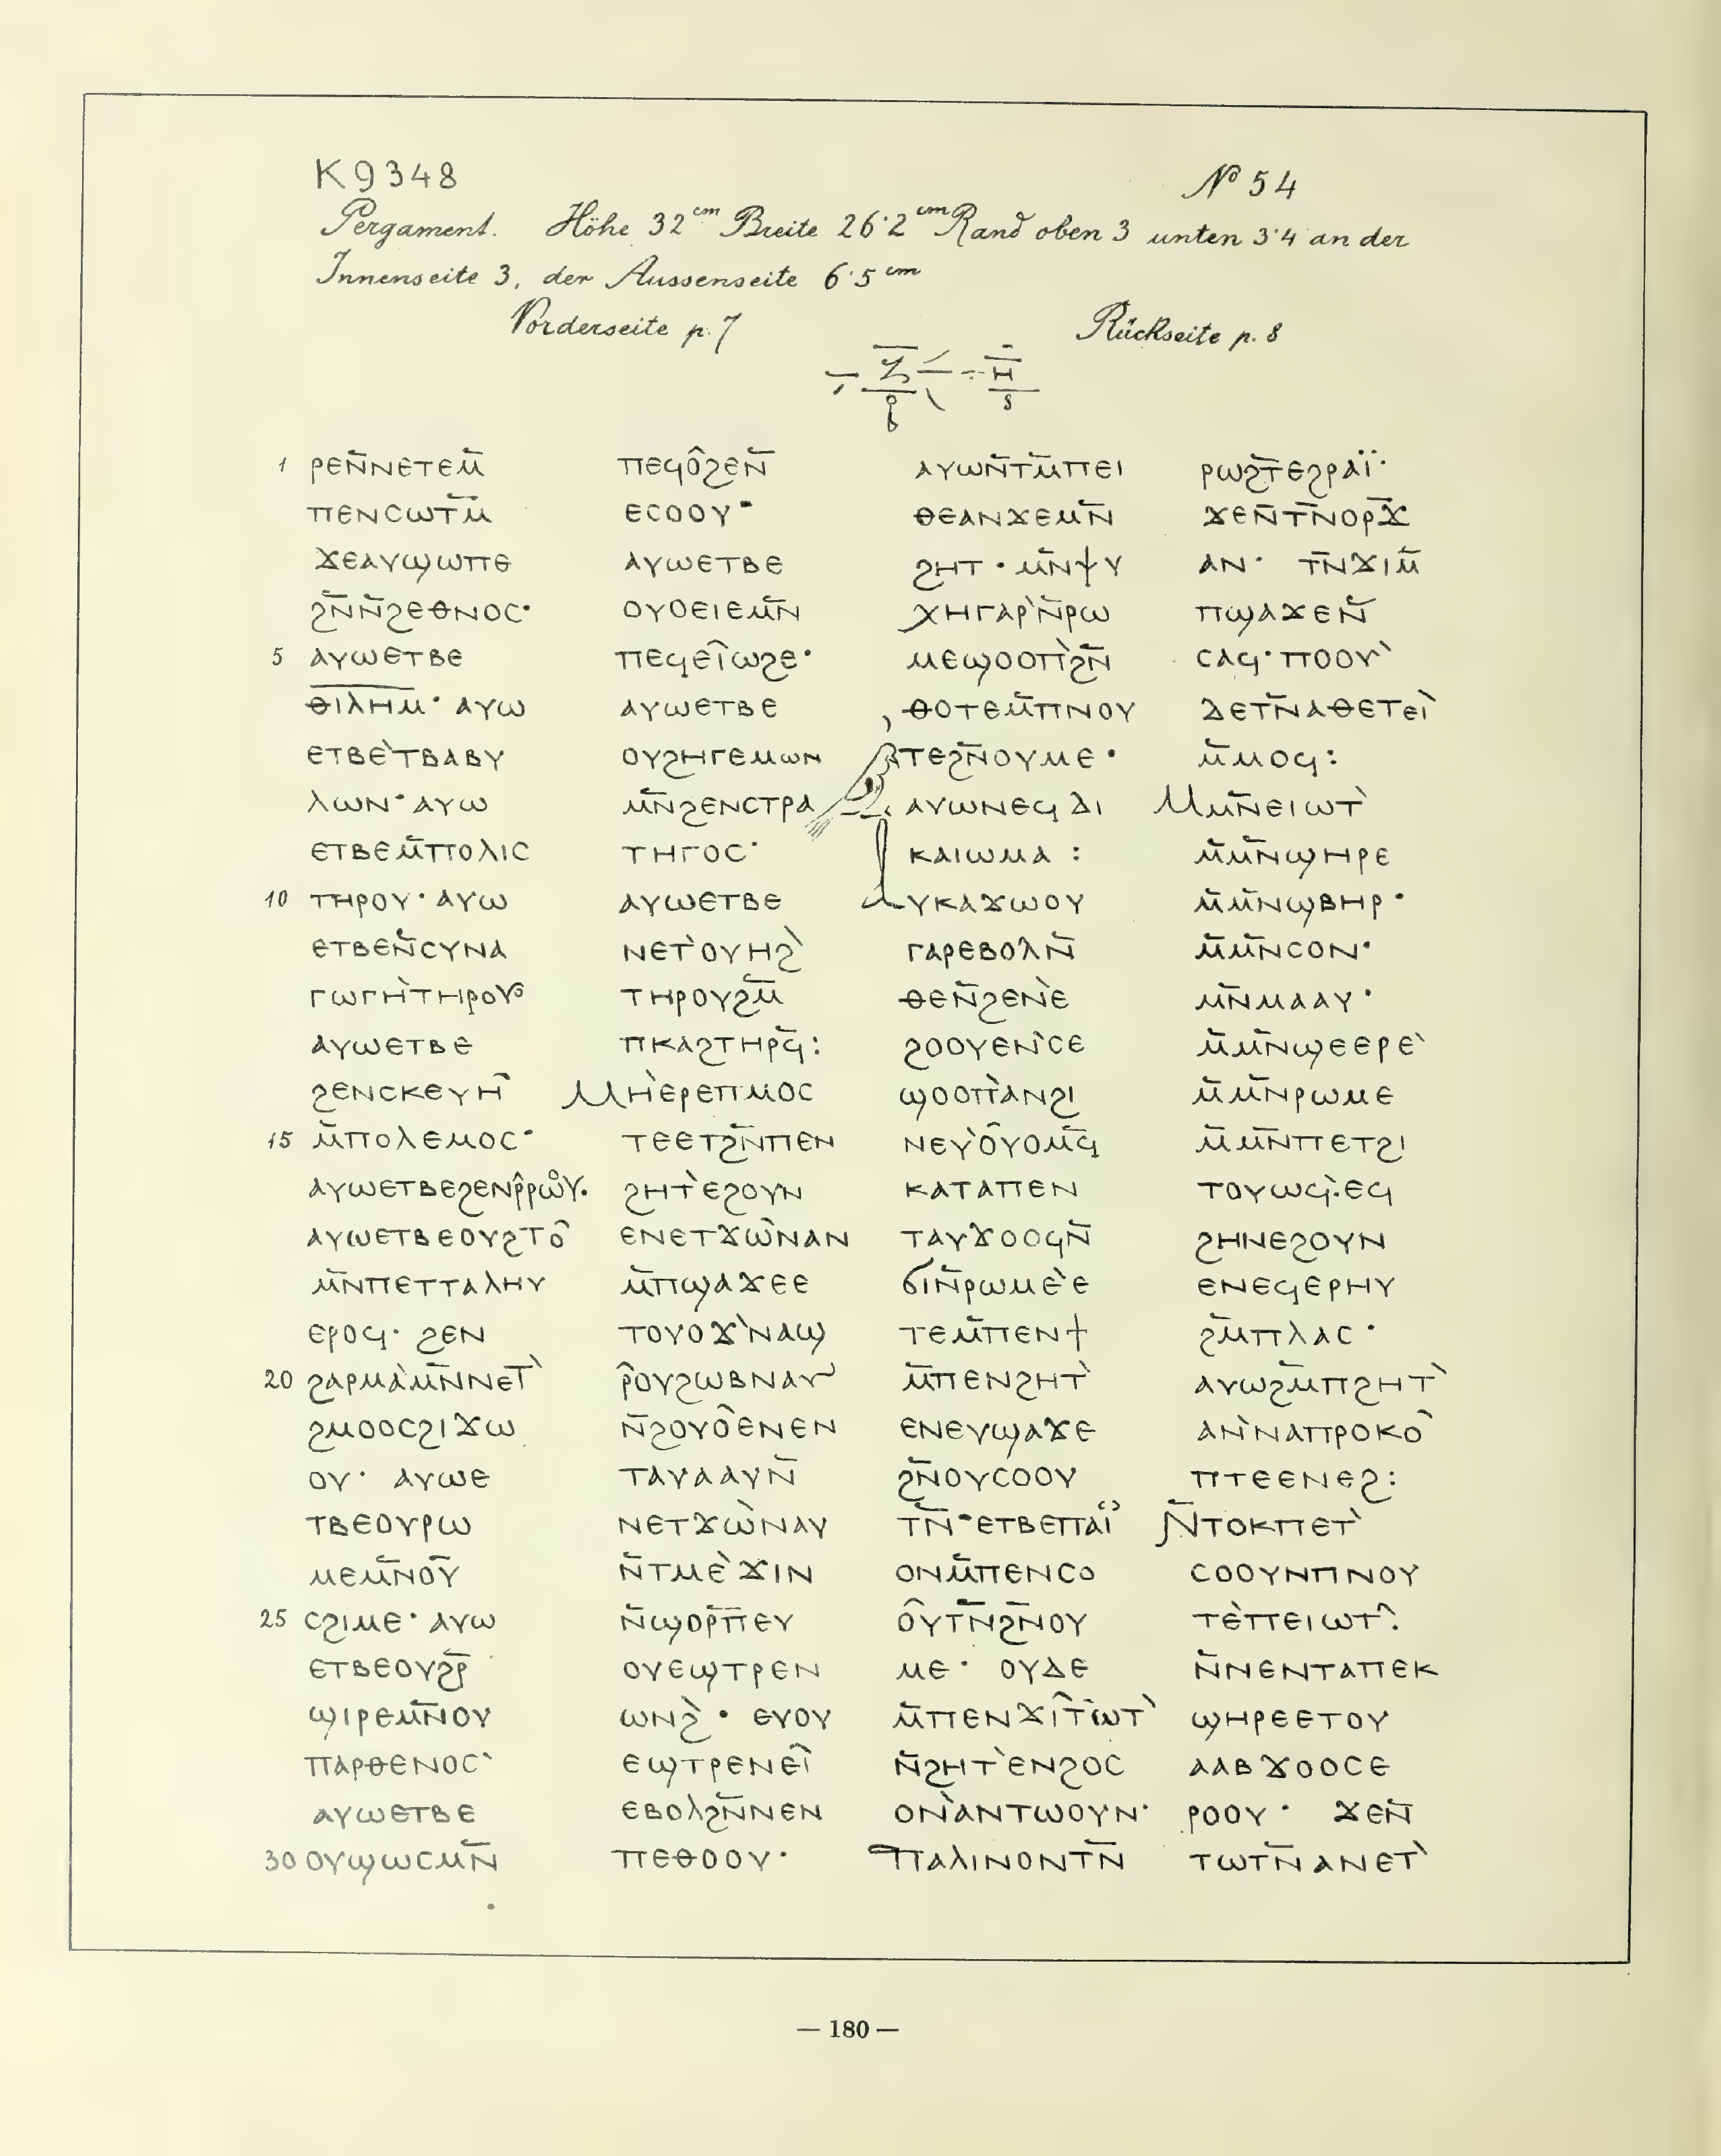 K 9348
Nº 54
Pergament. Höhe 32 cm Breite 26·2 cm Rand oben 3 unten 3·4 an der
Innenseite 3, der Aussenseite 6·5 cm
Vorderseite p. 7
Rückseite p. 8
ⲍ̅ ⲏ̅
1 ⲣⲉⲛ̅ⲛⲉⲧⲉⲙ̅
ⲡⲉⲛⲥⲱⲧⲙ̅
ϫⲉⲁⲩϣⲱⲡⲉ
ϩⲛ̅ⲛ̅ϩⲉⲑⲛⲟⲥ·
5 ⲁⲩⲱⲉⲧⲃⲉ
ⲑⲓⲗⲏⲙ· ⲁⲩⲱ
ⲉⲧⲃⲉ̀ⲧⲃⲁⲃⲩ
ⲗⲱⲛ· ⲁⲩⲱ
ⲉⲧⲃⲉⲙ̅ⲡⲟⲗⲓⲥ
10 ⲧⲏⲣⲟⲩ· ⲁⲩⲱ
ⲉⲧⲃⲉⲛ̅ⲥⲩⲛⲁ
ⲅⲱⲅⲏ̀ⲧⲏⲣⲟⲩ
ⲁⲩⲱⲉⲧⲃⲉ
ϩⲉⲛⲥⲕⲉⲩⲏ̂
15 ⲙ̅ⲡⲟⲗⲉⲙⲟⲥ·
ⲁⲩⲱⲉⲧⲃⲉϩⲉⲛⲣ̂ⲣⲱⲟⲩ·
ⲁⲩⲱⲉⲧⲃⲉⲟⲩϩⲧⲟ̂
ⲙ̅ⲛⲡⲉⲧⲧⲁⲗⲏⲩ
ⲉⲣⲟϥ· ϩⲉⲛ
20 ϩⲁⲣⲙⲁ̀ⲙ̅ⲛⲛⲉⲧ̀
ϩⲙⲟⲟⲥϩⲓϫⲱ
ⲟⲩ· ⲁⲩⲱⲉ
ⲧⲃⲉⲟⲩⲣⲱ
ⲙⲉⲙ̅ⲛⲟⲩ̅
25 ⲥϩⲓⲙⲉ· ⲁⲩⲱ
ⲉⲧⲃⲉⲟⲩϩⲣ̅
ϣⲓⲣⲉⲙ̅ⲛⲟⲩ
ⲡⲁⲣⲑⲉⲛⲟⲥ`
ⲁⲩⲱⲉⲧⲃⲉ
30 ⲟⲩϣⲱⲥⲙⲛ̅
ⲡⲉϥⲟ̂ϩⲉⲛ̅
ⲉⲥⲟⲟⲩ·
ⲁⲩⲱⲉⲧⲃⲉ
ⲟⲩⲟⲉⲓⲉⲙ̅ⲛ
ⲡⲉϥⲉⲓ̂ⲱϩⲉ·
ⲁⲩⲱⲉⲧⲃⲉ
ⲟⲩϩⲏⲅⲉⲙⲱⲛ
ⲙ̅ⲛϩⲉⲛⲥⲧⲣⲁ
ⲧⲏⲅⲟⲥ·
ⲁⲩⲱⲉⲧⲃⲉ
ⲛⲉⲧ̀ⲟⲩⲏϩ̀
ⲧⲏⲣⲟⲩϩⲙ̅
ⲡⲕⲁϩⲧⲏⲣϥ̅:
ⲙⲏ̀ⲉⲣⲉⲡⲙⲟⲥ
ⲧⲉⲉⲧϩⲛ̅ⲡⲉⲛ
ϩⲏⲧ̀ⲉϩⲟⲩⲛ
ⲉⲛⲉⲧϫⲱ̂ⲛⲁⲛ
ⲙ̅ⲡϣⲁϫⲉⲉ
ⲧⲟⲩⲟϫ̀ⲛⲁϣ
ⲣ̂ⲟⲩϩⲱⲃⲛⲁⲩ
ⲛ̅ϩⲟⲩⲟ̂ⲉⲛⲉⲛ
ⲧⲁⲩⲁⲁⲩⲛ̅
ⲛⲉⲧϫⲱ̀ⲛⲁⲩ
ⲛ̅ⲧⲙⲉ̀ϫⲓⲛ
ⲛ̅ϣⲟⲣⲡ̅ⲉⲩ
ⲟⲩⲉϣⲧⲣⲉⲛ
ⲱⲛϩ̀· ⲉⲩⲟⲩ
ⲉϣⲧⲣⲉⲛⲉⲓ̂
ⲉⲃⲟⲗϩⲛ̅ⲛⲉⲛ
ⲡⲉⲑⲟⲟⲩ·
ⲁⲩⲱⲛ̅ⲧⲙ̅ⲡⲉⲓ
ⲑⲉⲁⲛϫⲉⲙⲛ̅
ϩⲏⲧ· ⲙ̅ⲛⲯⲩ
ⲭⲏⲅⲁⲣ̀ⲛ̅ⲣⲱ
ⲙⲉϣⲟⲟⲡ̀ϩⲛ̅
ⲑⲟⲧⲉⲙ̅ⲡⲛⲟⲩ
ⲧⲉϩⲛ̅ⲟⲩⲙⲉ·
ⲁⲩⲱⲛⲉϥⲇⲓ
ⲕⲁⲓⲱⲙⲁ:
ⲁⲩⲕⲁϫⲱⲟⲩ
ⲅⲁⲣⲉⲃⲟⲗⲛ̅
ⲑⲉⲛ̅ϩⲉⲛ̀ⲉ
ϩⲟⲟⲩⲉⲛ̀ⲥⲉ
ϣⲟⲟⲡ̀ⲁⲛϩⲓ
ⲛⲉⲩ̀ⲟ̂ⲩⲟⲙϥ̅
ⲕⲁⲧⲁⲡⲉⲛ
ⲧⲁⲩϫⲟⲟϥⲛ̅
ϭⲓⲛ̅ⲣⲱⲙⲉ̀ⲉ
ⲧⲉⲙ̅ⲡⲉⲛϯ
ⲙ̅ⲡⲉⲛϩⲏⲧ̀
ⲉⲛⲉⲩϣⲁϫⲉ
ϩⲛ̅ⲟⲩⲥⲟⲟⲩ
ⲧⲛ̅·ⲉⲧⲃⲉⲡⲁⲓ̈
ⲟⲛⲙ̅ⲡⲉⲛⲥⲟ
ⲟ̂ⲩⲧⲛ̅ϩⲛ̅ⲟⲩ
ⲙⲉ· ⲟⲩⲇⲉ
ⲙ̅ⲡⲉⲛϫⲓ̂ⲧⲱⲧ̀
ⲛ̅ϩⲏⲧ̀ⲉⲛϩⲟⲥ
ⲟⲛ̀ⲁⲛⲧⲱⲟⲩⲛ·
ⲡⲁⲗⲓⲛⲟⲛⲧⲛ̅
ⲣⲱϩⲧ̅ⲉϩⲣⲁⲓ̈·
ϫⲉⲛ̅ⲧⲛ̅ⲟⲣϫ̅
ⲁⲛ· ⲧⲛ̅ϫⲓⲙ̅
ⲡϣⲁϫⲉⲛ̅
ⲥⲁϥ·ⲡⲟⲟⲩ̀
ⲇⲉⲧⲛ̅ⲁⲑⲉⲧⲉⲓ̀
ⲙ̅ⲙⲟϥ:
ⲙⲙ̅ⲛⲉⲓⲱⲧ̀
ⲙ̅ⲙ̅ⲛϣⲏⲣⲉ
ⲙ̅ⲙ̅ⲛϣⲃⲏⲣ·
ⲙ̅ⲙ̅ⲛⲥⲟⲛ·
ⲙ̅ⲛⲙⲁⲁⲩ·
ⲙ̅ⲙ̅ⲛϣⲉⲉⲣⲉ̀
ⲙ̅ⲙ̅ⲛⲣⲱⲙⲉ
ⲙ̅ⲙ̅ⲛⲡⲉⲧϩⲓ
ⲧⲟⲩⲱϥ̀·ⲉϥ
ϩⲏⲛⲉϩⲟⲩⲛ
ⲉⲛⲉϥⲉⲣⲏⲩ
ϩⲙ̅ⲡⲗⲁⲥ·
ⲁⲩⲱϩⲙ̅ⲡϩⲏⲧ̀
ⲁⲛ̀ⲛⲁⲡⲣⲟⲕⲟ̂
ⲡⲧⲉⲉⲛⲉϩ:
ⲛ̅ⲧⲟⲕⲡⲉⲧ̀
ⲥⲟⲟⲩⲛⲡⲛⲟⲩ
ⲧⲉ̀ⲡⲉⲓⲱⲧ̀:
ⲛ̅ⲛⲉⲛⲧⲁⲡⲉⲕ
ϣⲏⲣⲉⲉⲧⲟⲩ
ⲁⲁⲃϫⲟⲟⲥⲉ
ⲣⲟⲟⲩ· ϫⲉⲛ̅
ⲧⲱⲧⲛ̅ⲁⲛⲉⲧ̀
— 180 —